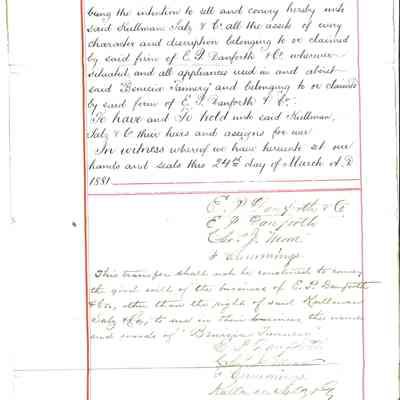 being the intention to sell and convey hereby unto
said Kullman Salz & Co. all the assets of every
character and description belonging to or claimed
by said firm of E. P. Danforth & Co. wherever
situated and all appliances used in and about
said "Benecia Tannery" and belonging to or claimed
by said firm of E. P. Danforth & Co.
To have and To hold unto said Kullman,
Salz & Co their heirs and assigns for ever
In witness whereof we have hereunto set our
hands and seals this 24th day of March A.D
1881
E. P. Danforth & Co
E P Danforth
J.
Cummings
This transfer shall not be construed to convey
the good will of the business of E. P. Danforth
& Co, other than the right of said Kullman
Salz & Co, to use in their business the name
and words of "Benecia Tannery"
E P Danforth
Cummings
Kullman Salz & Co